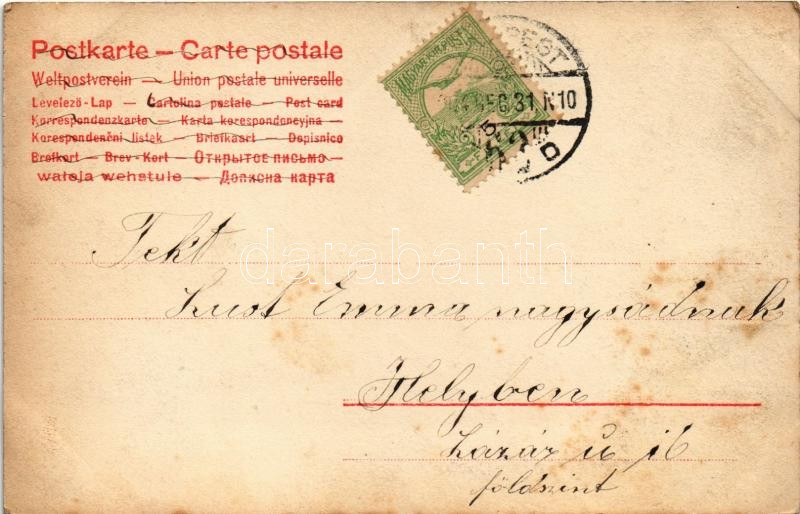 Postkarte – Carte postale
Weltpostverein — Union postale universelle
Levelező-Lap — Cartolina postale — Post card
Korrespondenzkarte — Karta korespondencyjna —
Korespondenční lístek — Briefkaart — Dopisnice
Brefkort — Brev-Kort — Открытое письмо —
wateja wehstule — Дописна карта
MAGYAR KIR. POSTA
PEST
DEC 31. N10
D
darabanth
Tekt
Lust Emma nagysádnak
Helyben
Lázár u 16
földszint